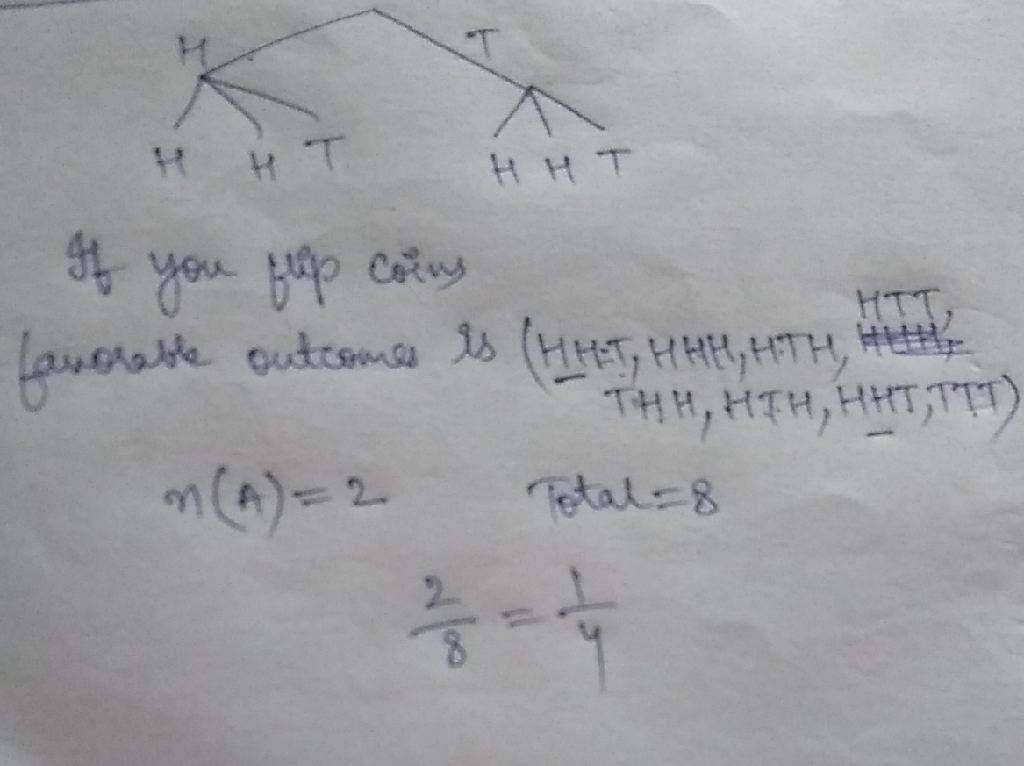 H T
H H T H H T
If you flip coins
HTT,
favorable outcomes is (HHT, HHH, HTH,
THH, HTH, HHT, TTT)
n(A)=2 Total=8
2/8 = 1/4